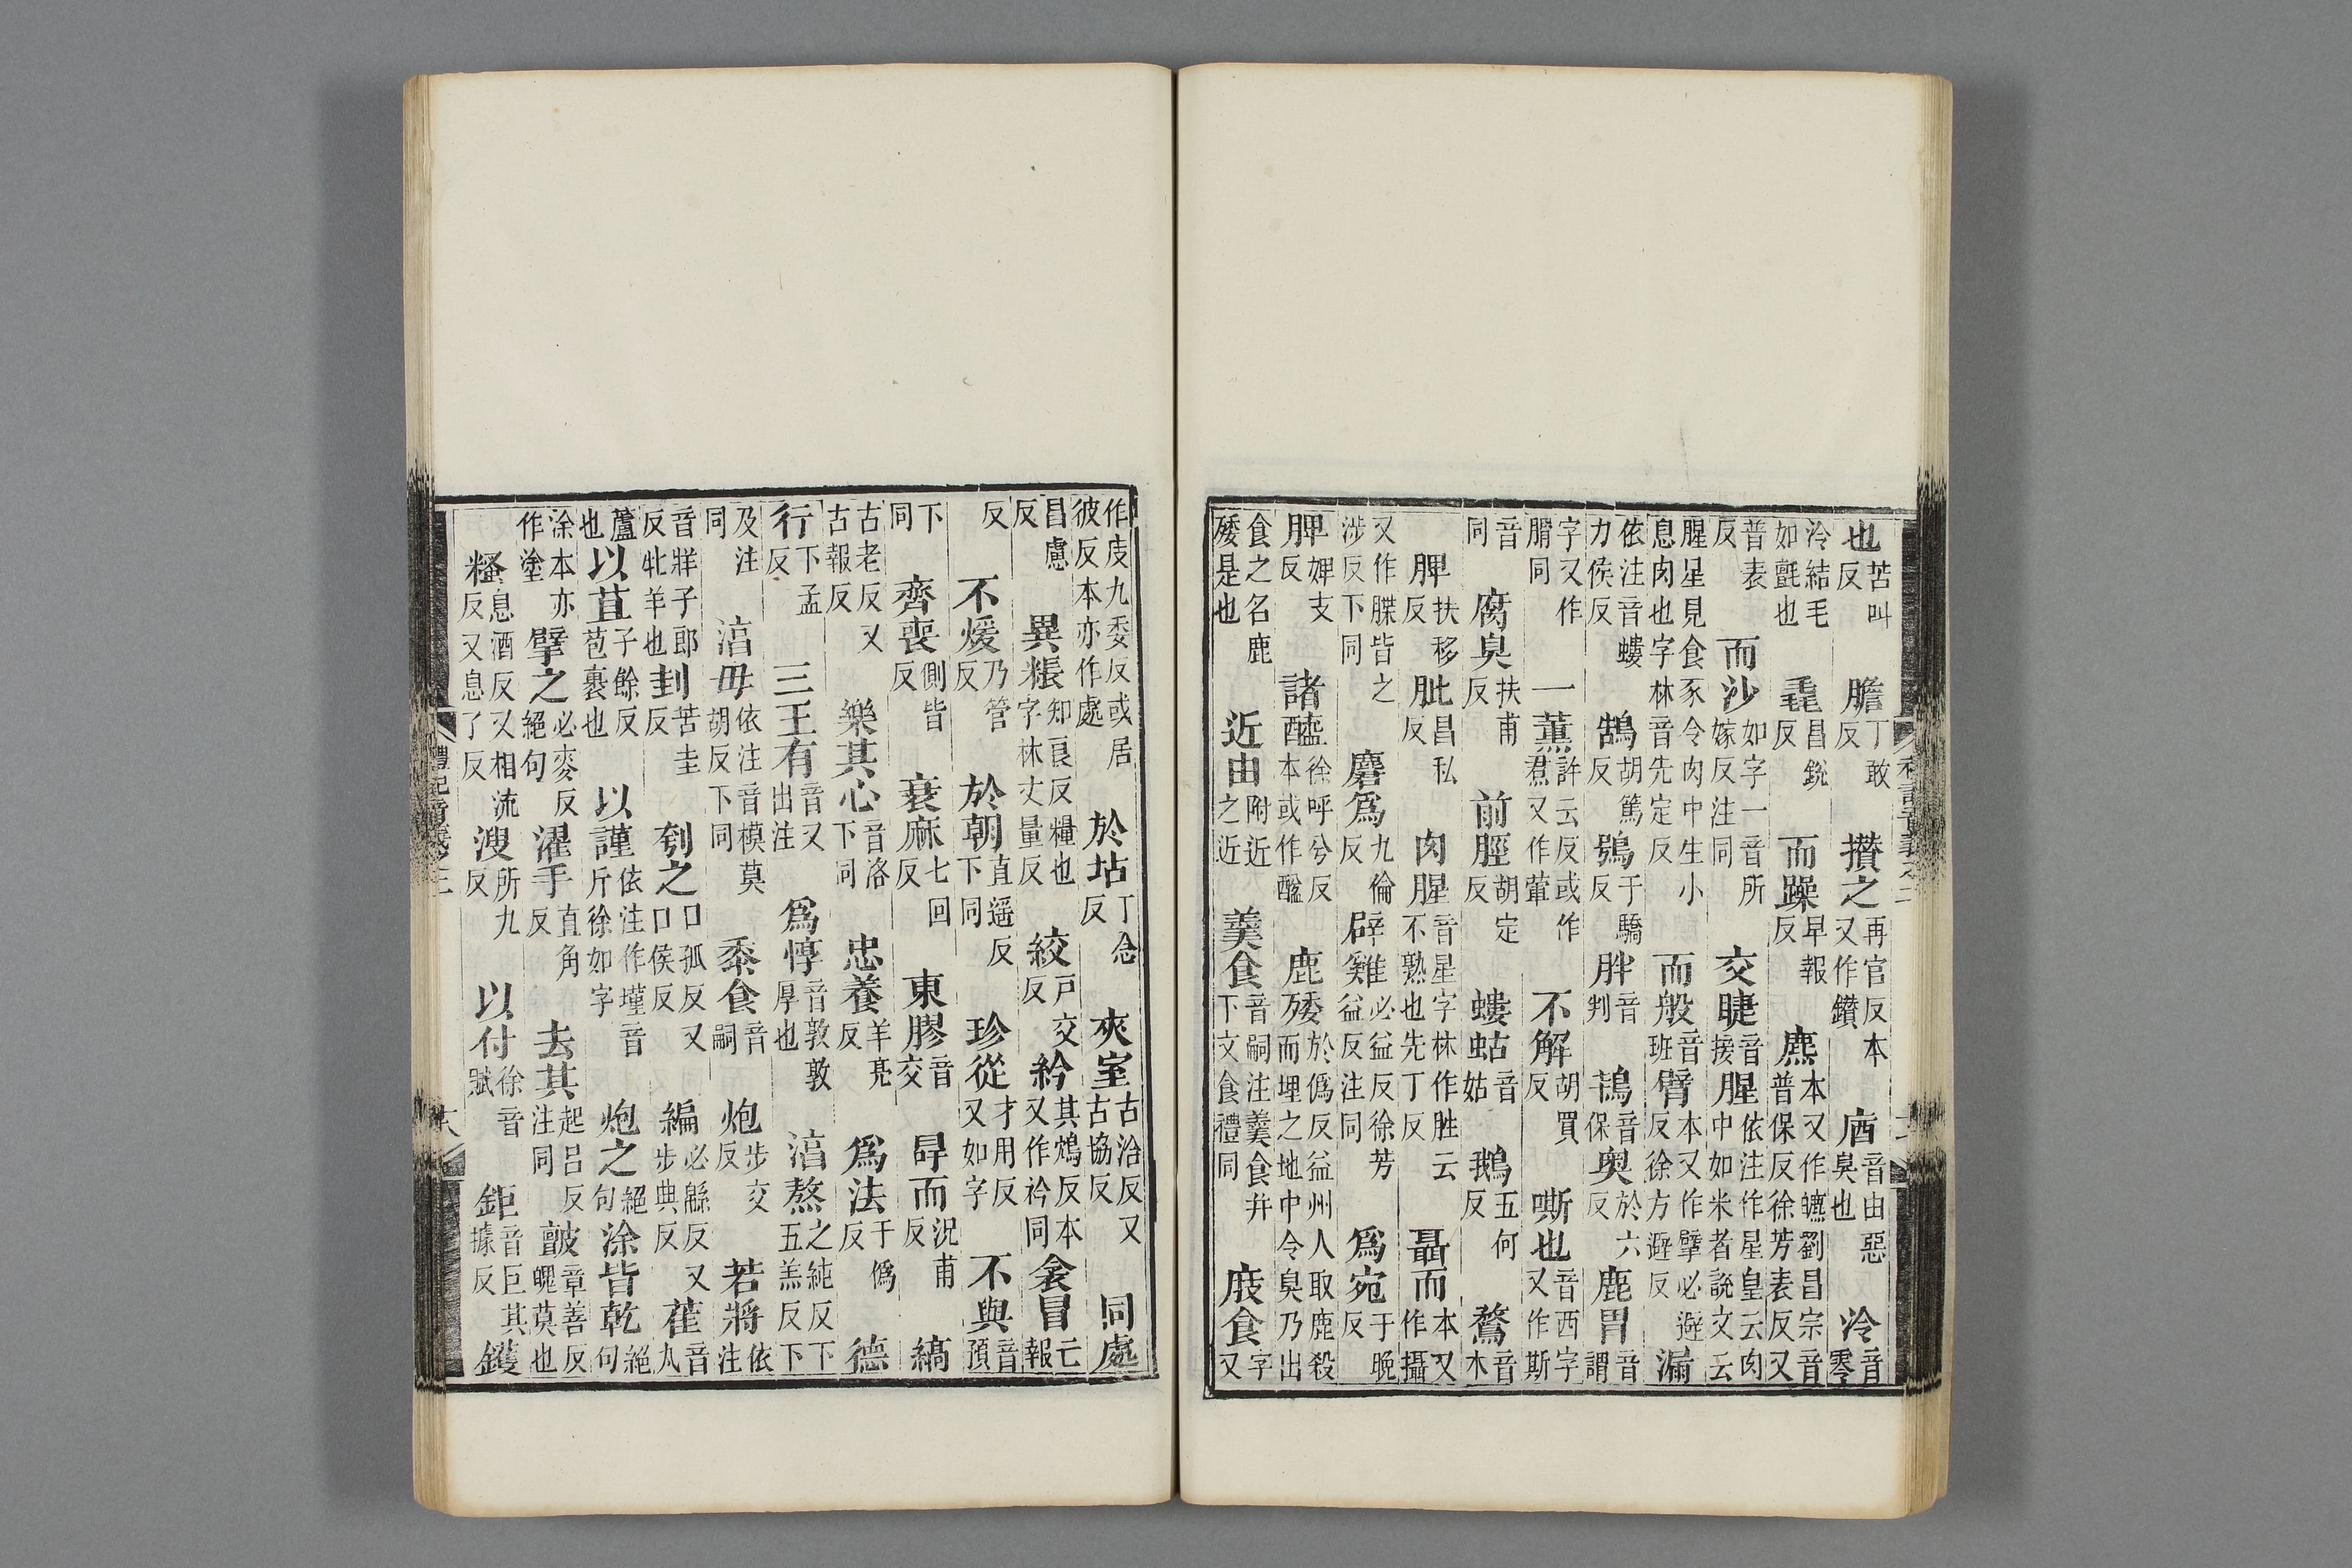 也苦叫反 膽丁敢反 攅之再官反本又作鑚 庮音由惡臭也 冷音零
泠結毛如氈也 毳昌銳反 而躁早報反 麃本又作皫劉昌宗音普保反徐芳表反又
普表反 而沙如字一音所嫁反注同 交睫音接 腥依注作星皇云肉中如米者說文云
腥星見食豕令肉中生小息肉也字林音先定反 而般音班 臂本又作擘必避反徐方避反 漏
依注音螻力侯反 鵠胡篤反 鴞于驕反 胖音判 鴇音保 奥於六反 鹿胃音謂
字又作䐹同 一薰許云反或作焄又作葷 不解胡買反 嘶也音西字又作斯
音同 腐臭扶甫反 前脛胡定反 螻蛄音姑 鵝五何反 鶩音木
脾扶移反 肶昌私反 肉腥音星字林作胜云不熟也先丁反 聶而本又作攝
又作牒皆之涉反下同 麕爲九倫反 辟雞必益反徐芳益反注同 爲宛于晚反
脾婢支反 諸醯徐呼兮反本或作醢 鹿殗於僞反益州人取鹿殺而埋之地中令臭乃出
食之名鹿殗是也 近由附近之近 羹食音嗣注羹食并下文食禮同 庋食字又
作庋九委反或居彼反本亦作處 於坫丁念反 夾室古洽反又古協反 同處
昌慮反 異粻知良反糧也字林丈量反 絞户交反 紟其鴆反本又作衿同 衾冒亡報
反 不煖乃管反 於朝直遥反下同 珍從才用反又如字 不與音預
下同 齊喪側皆反 衰麻七回反 東膠音交 冔而況甫反 縞
古老反又古報反 樂其心音洛下同 忠養羊亮反 爲法于僞反 德
行下孟反 三王有音又出注 爲惇音敦敦厚也 淯熬之純反下五羔反下
及注同 淯毋依注音模莫胡反下同 黍食音嗣 炮步交反 若將依注
音牂子郎反牝羊也 刲苦圭反 刳之口孤反又口侯反 編必緜反又步典反 萑音丸
蘆也 以苴子餘反苞裹也 以謹依注作墐音斤徐如字 炮之絕句 涂皆乾絕句
涂本亦作塗 擘之必麥反絕句 濯手直角反 去其起呂反注同 皽章善反䁾莫也
糔息酒反又相流反又息了反 溲所九反 以付徐音賦 鉅音巨其據反 鑊